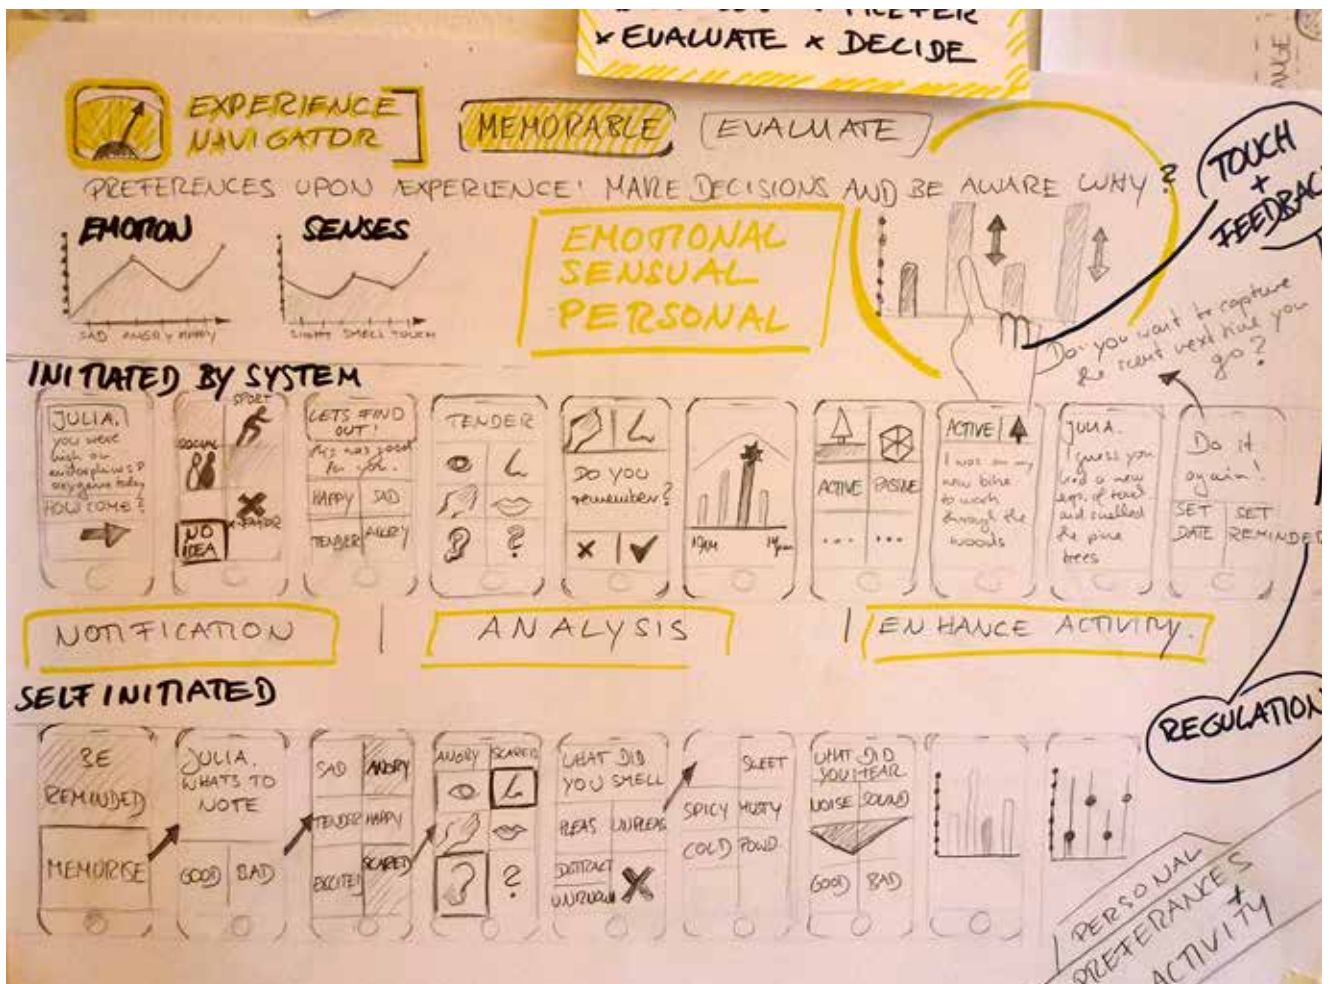 PREFER
× EVALUATE × DECIDE
EXPERIENCE
NAVIGATOR
MEMORABLE
EVALUATE
PREFERENCES UPON EXPERIENCE! MAKE DECISIONS AND BE AWARE WHY?
TOUCH
+
FEEDBACK
EMOTION
SENSES
SAD ANGRY HAPPY
SIGHT SMELL TOUCH
EMOTIONAL
SENSUAL
PERSONAL
Do you want to capture
the scent next time you
go?
INITIATED BY SYSTEM
JULIA,
you were
high on
endorphines &
oxygene today
HOW COME?
SPORT
SOCIAL
X-FACTOR
NO
IDEA
LETS FIND
OUT!
this was good
for you.
HAPPY SAD
TENDER ANGRY
TENDER
?
DO YOU
remember?
ACTIVE PASSIVE
... ...
ACTIVE
I was on my
new bike
to work
through the
woods
JULIA.
I guess you
had a new
and smelled
the pine
trees
Do it
again!
SET SET
DATE REMINDER
NOTIFICATION
ANALYSIS
ENHANCE ACTIVITY.
SELF INITIATED
REGULATION
BE
REMINDED
MEMORISE
JULIA.
WHATS TO
NOTE
GOOD BAD
SAD ANGRY
TENDER HAPPY
EXCITED SCARED
ANGRY SCARED
?
WHAT DID
YOU SMELL
PLEAS UNPLEAS
DISTRACT
UNKNOWN
SWEET
SPICY MUSTY
COLD POWD.
WHAT DID
YOU HEAR
NOISE SOUND
GOOD BAD
PERSONAL
PREFERANCES
+
ACTIVITY